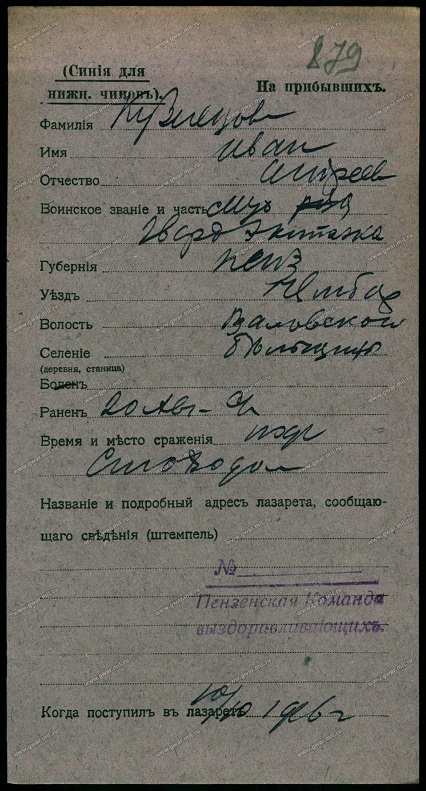 279
(Синія для
нижн. чиновъ).
На прибывшихъ.
Фамилія Кузнецов
Имя Иван
Отчество Андреев
Воинское званіе и часть
Гвард Экипажа
Губернія Пенз
Уѣздъ Чембар
Волость
Селеніе
(деревня, станица)
Боленъ
Раненъ 20
Время и мѣсто сраженія
Названіе и подробный адресъ лазарета, сообщаю-
щаго свѣдѣнія (штемпель)
№
Пензенская Команда
выздоравливающихъ.
Когда поступилъ въ лазаретъ 10/10 1916 г